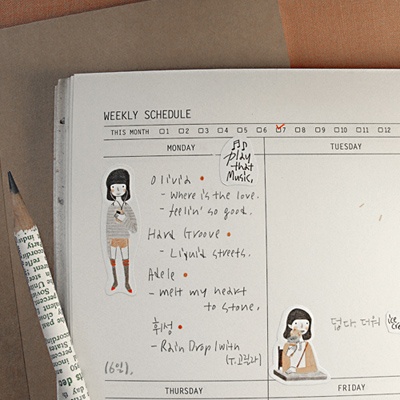 WEEKLY SCHEDULE
THIS MONTH □1 □2 □3 □4 □5 □6 □7 □8 □9 □10 □11 □12
MONDAY
TUESDAY
play
that
Music,
Olivia
- Where is the love.
- feelin' so good.
Hard Groove
- Liquid streets.
Adele
- melt my heart
to stone,
휘성
- Rain Drop (with
(T.고릴라)
(6일).
덥다. 더워
ice
THURSDAY
FRIDAY